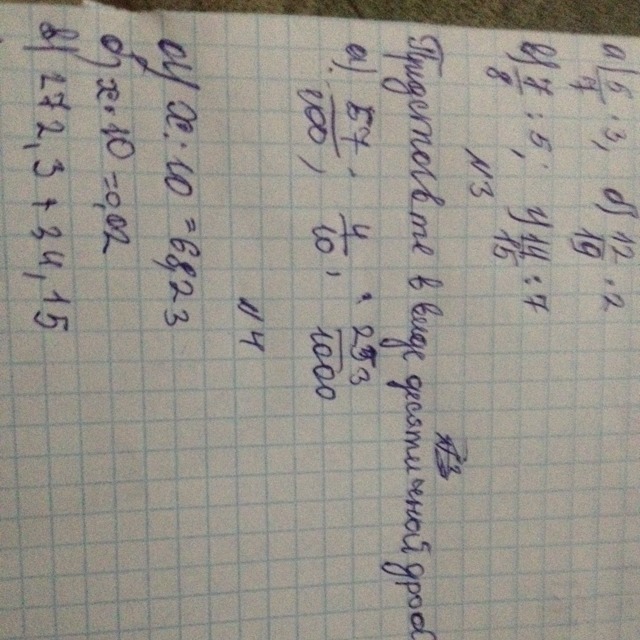 а) 6/7 : 3, б) 12/19 : 2
в) 7/8 : 5, г) 14/15 : 7
№3
Представьте в виде десятичной дроб
а) 57/100, 4/10, 253/1000
№4
а) x · 10 = 68,23
б) x · 10 = 0,02
в) 272,3 + 34,15